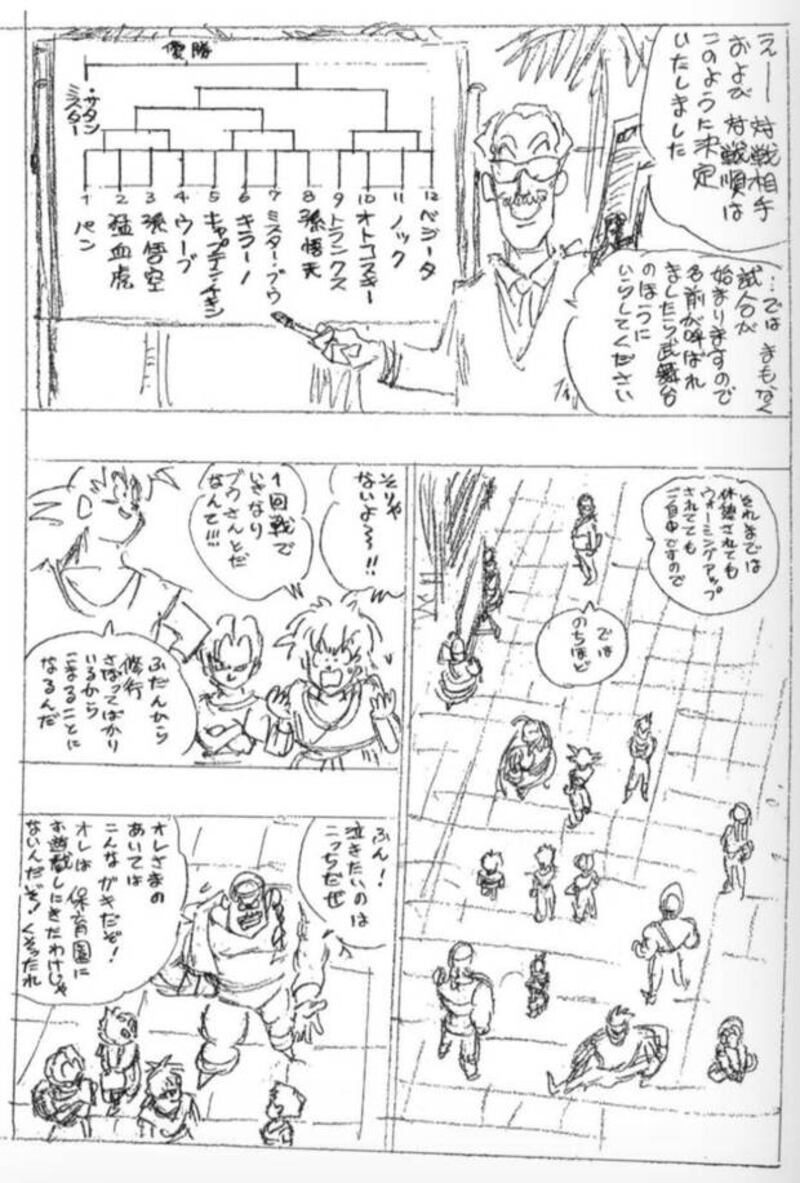 えー 対戦相手
および 対戦順は
このように決定
いたしました
…では まもなく
試合が
始まりますので
名前が呼ばれ
ましたら武舞台
のほうに
いらしてください
優勝
ミスター
・サタン
1 パン
2 猛血虎
3 孫悟空
4 ウーブ
5 キャプテン・チキン
6 キラーノ
7 ミスター・ブウ
8 孫悟天
9 トランクス
10 オトコスキー
11 ノック
12 ベジータ
それまでは
休憩されても
ウォーミングアップ
されてても
ご自由ですので
では
のちほど
そりゃ
ないよ〜〜!!
1回戦で
いきなり
ブウさんとだ
なんて!!!
ふだんから
修行
さぼってばかり
いるから
こまることに
なるんだ
ふん!
泣きたいのは
こっちだぜ
オレさまの
あいては
こんなガキだぞ!
オレは 保育園に
お遊戯しにきたわけじゃ
ないんだぞ!くそったれ